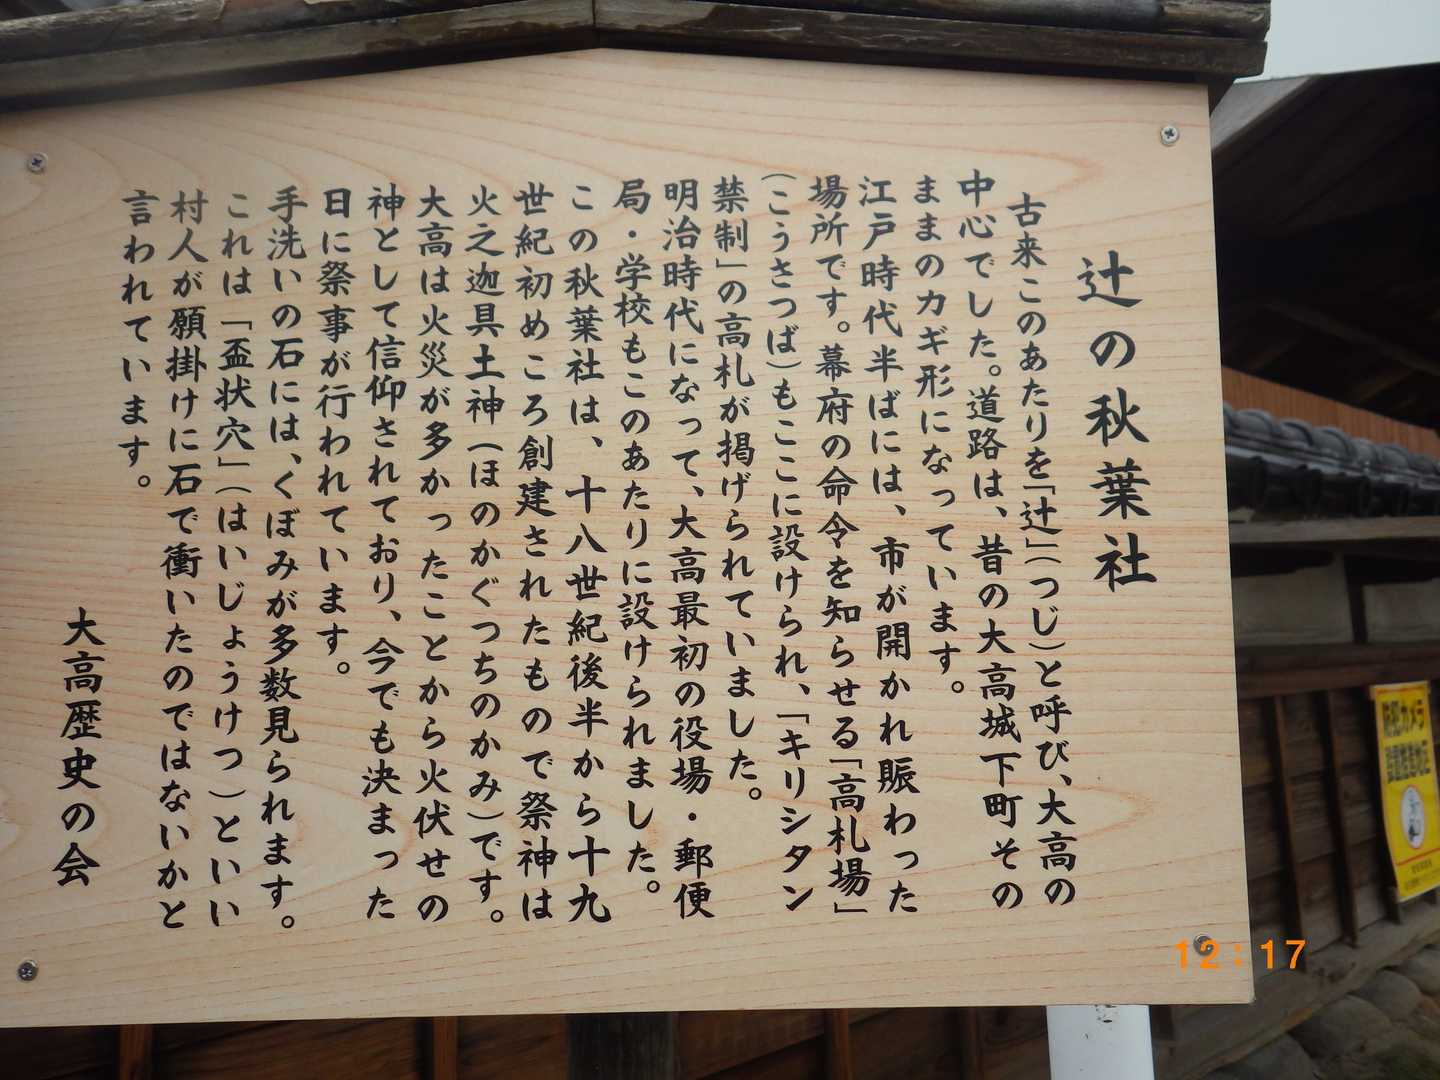 辻の秋葉社
古来このあたりを「辻」（つじ）と呼び、大高の
中心でした。道路は、昔の大高城下町その
ままのカギ形になっています。
江戸時代半ばには、市が開かれ賑わった
場所です。幕府の命令を知らせる「高札場」
（こうさつば）もここに設けられ、「キリシタン
禁制」の高札が掲げられていました。
明治時代になって、大高最初の役場・郵便
局・学校もこのあたりに設けられました。
この秋葉社は、十八世紀後半から十九
世紀初めころ創建されたもので祭神は
火之迦具土神（ほのかぐつちのかみ）です。
大高は火災が多かったことから火伏せの
神として信仰されており、今でも決まった
日に祭事が行われています。
手洗いの石には、くぼみが多数見られます。
これは「盃状穴」（はいじょうけつ）といい
村人が願掛けに石で衝いたのではないかと
言われています。
大高歴史の会
防犯カメラ
12:17